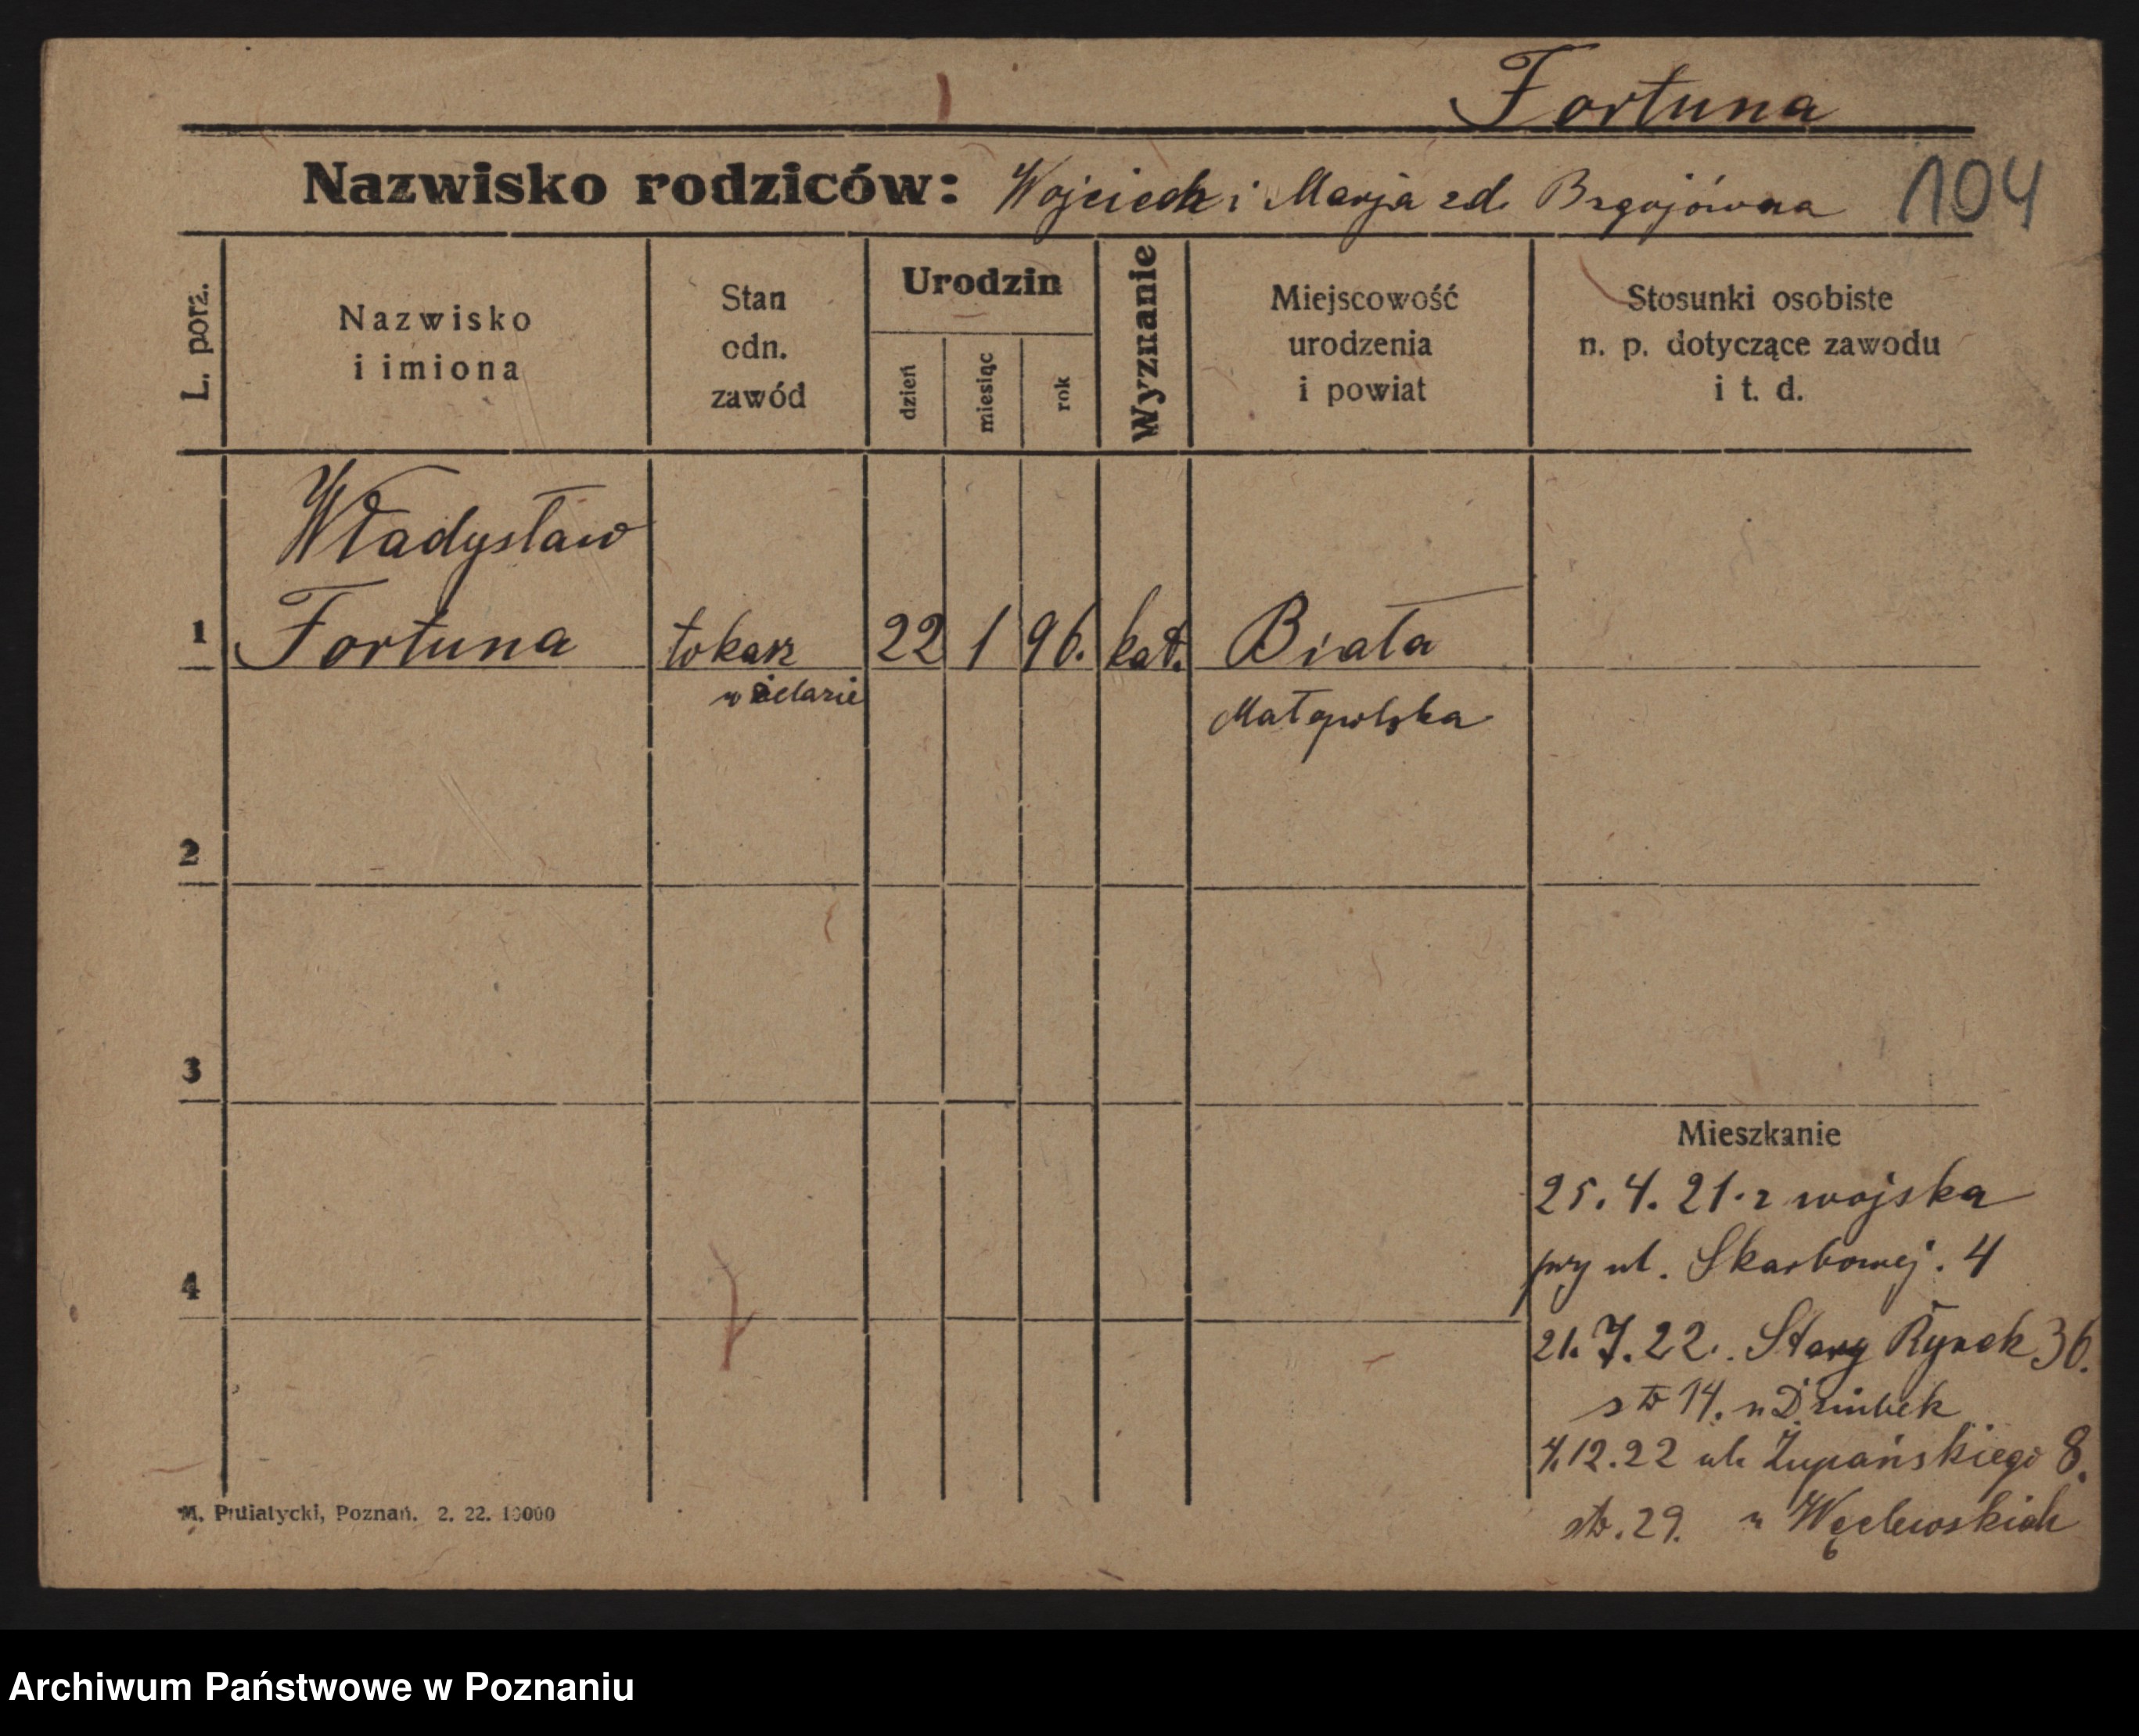 Fortuna
Nazwisko rodziców: Wojciech i Marja zd. 104
L. porz.
Nazwisko
i imiona
Stan
odn.
zawód
Urodzin
dzień
miesiąc
rok
Wyznanie
Miejscowość
urodzenia
i powiat
Stosunki osobiste
n. p. dotyczące zawodu
i t. d.
Władysław
1 Fortuna tokarz 22 1 96. kat. Biała
w żelazie Małopolska
2
3
Mieszkanie
25. 4. 21. z wojska
przy ul. Skarbowej. 4
4
21. 7. 22. Stary Rynek 36.
14. u
4.12.22 ul. Żupańskiego 8.
29. u Węclewskich
M. Putiatycki, Poznań. 2. 22. 10000
Archiwum Państwowe w Poznaniu